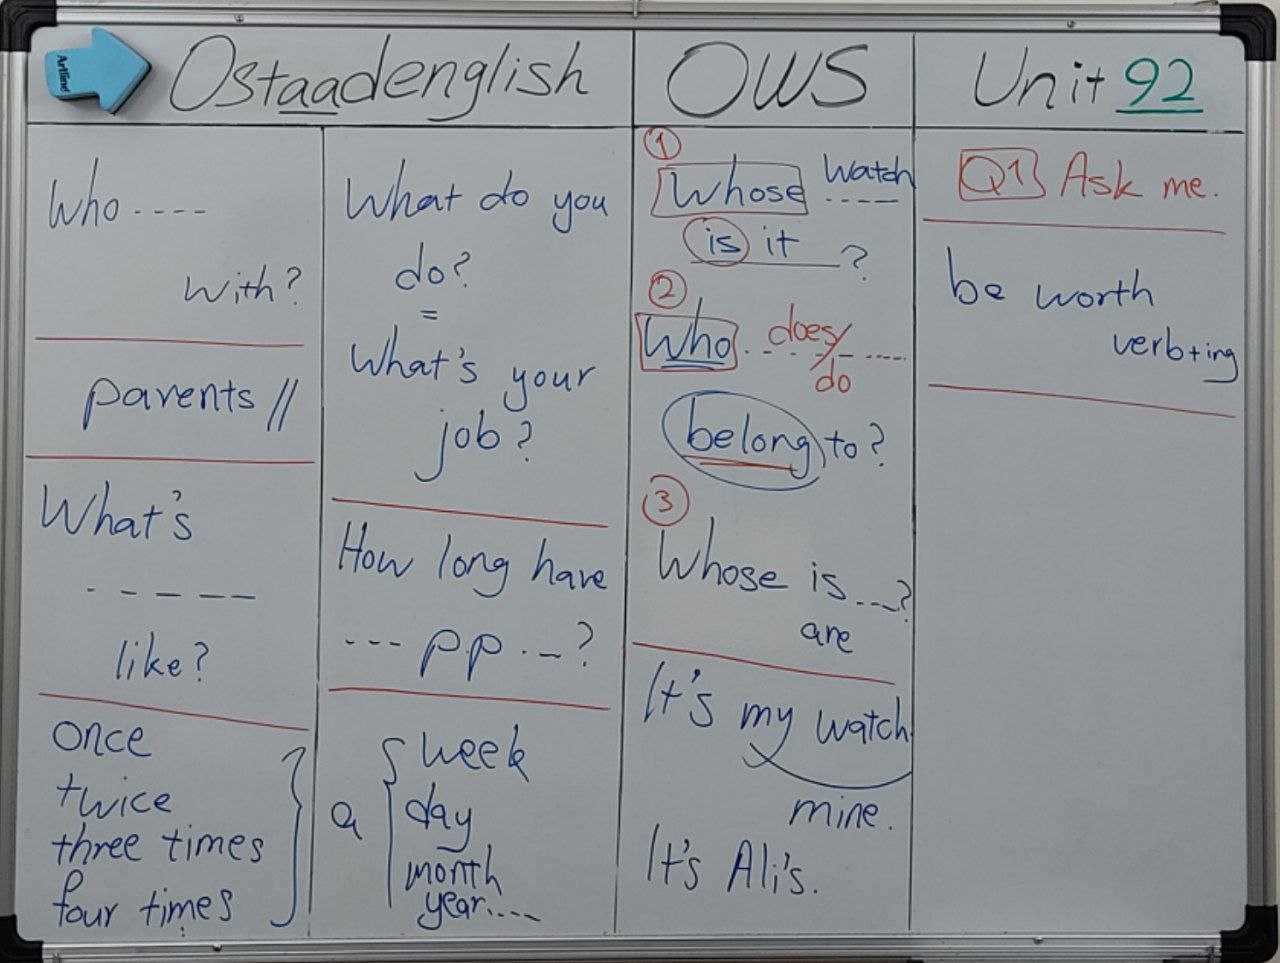 Artline
Ostaadenglish
OWS
Unit 92
Who ----
with?
parents //
What's
- - - - -
like?
once
twice
three times
four times
What do you
do?
=
What's your
job?
How long have
--- p.p. -- ?
a { week
day
month
year....
1
Whose watch -----
is it ?
2
Who ... does/do ....
belong to?
3
Whose is ...?
are
It's my watch
mine.
It's Ali's.
Q1 Ask me.
be worth
verb+ing